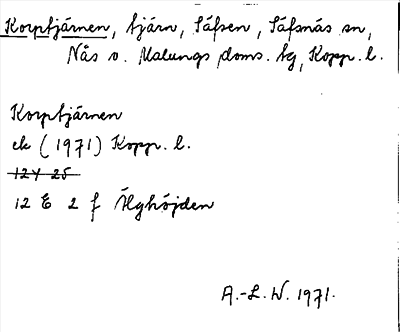 Korptjärnen, tjärn, Säfsen, Säfsnäs sn,
Nås o. Malungs doms. tg, Kopp. l.
Korptjärnen
ek (1971) Kopp. l.
12 Y 25
12 E 2 f Älghöjden
A.-L. W. 1971.